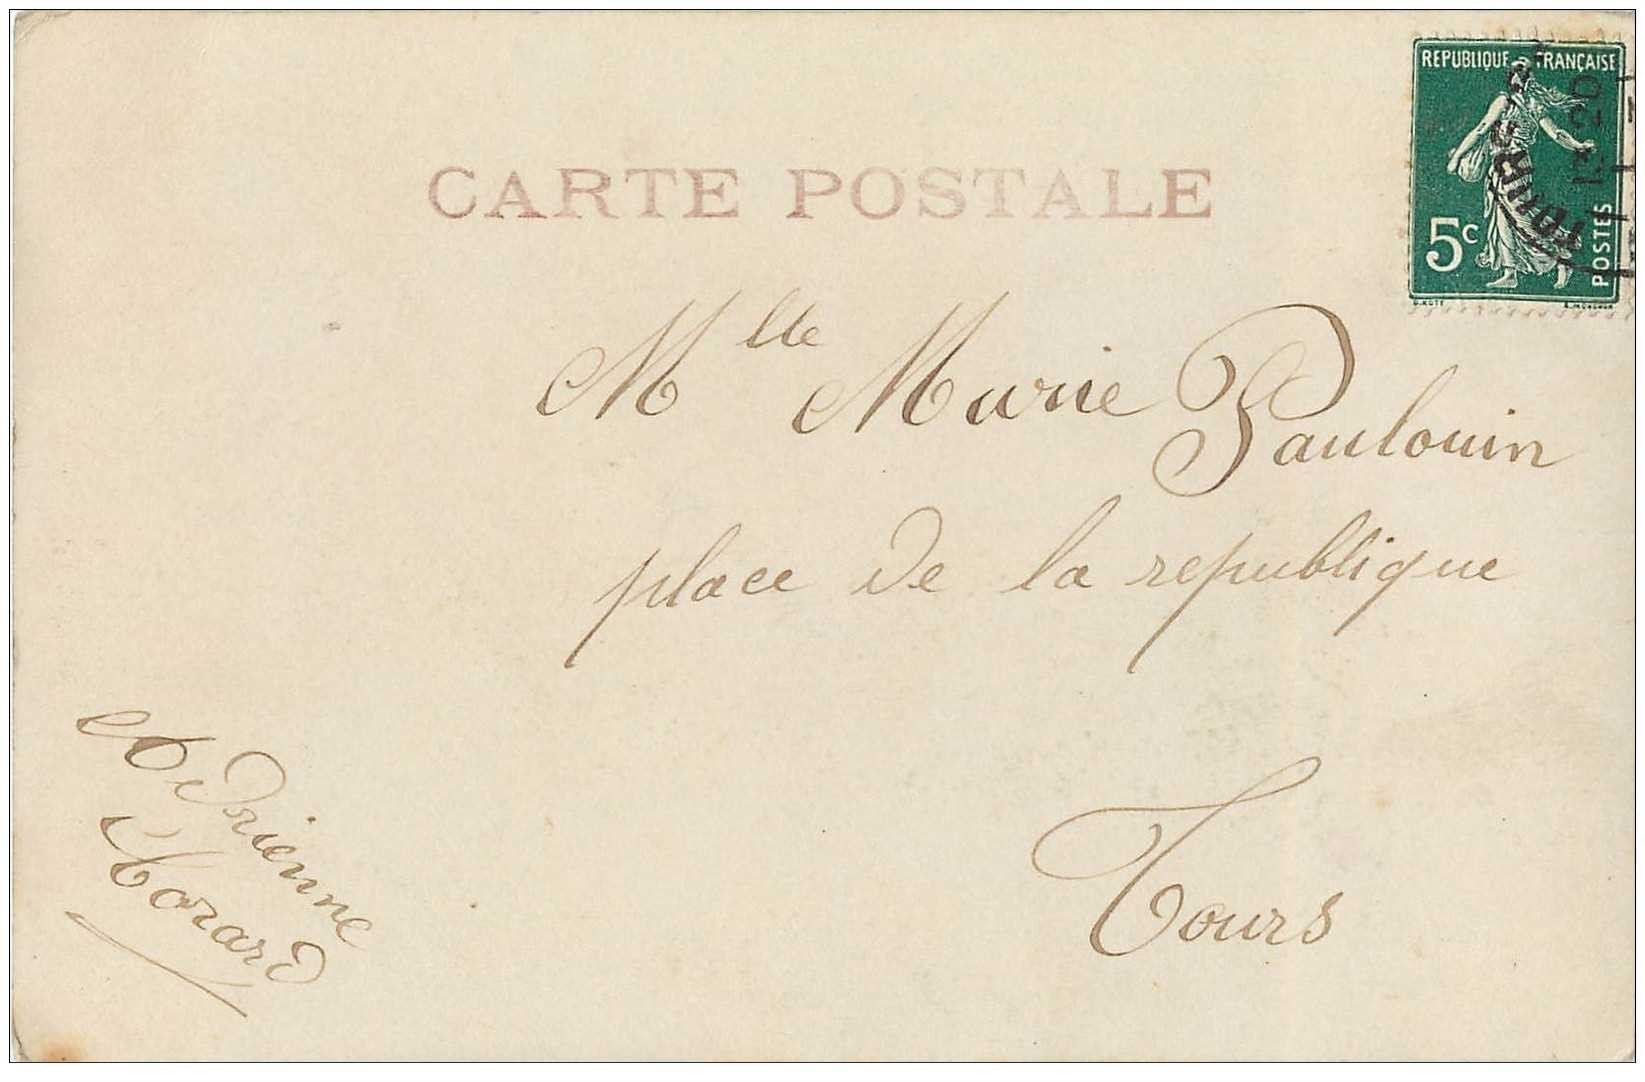 REPUBLIQUE FRANÇAISE
5c
POSTES
TOURS
13 20
CARTE POSTALE
Mlle Marie Paulouin
place de la republique
Tours
Adrienne